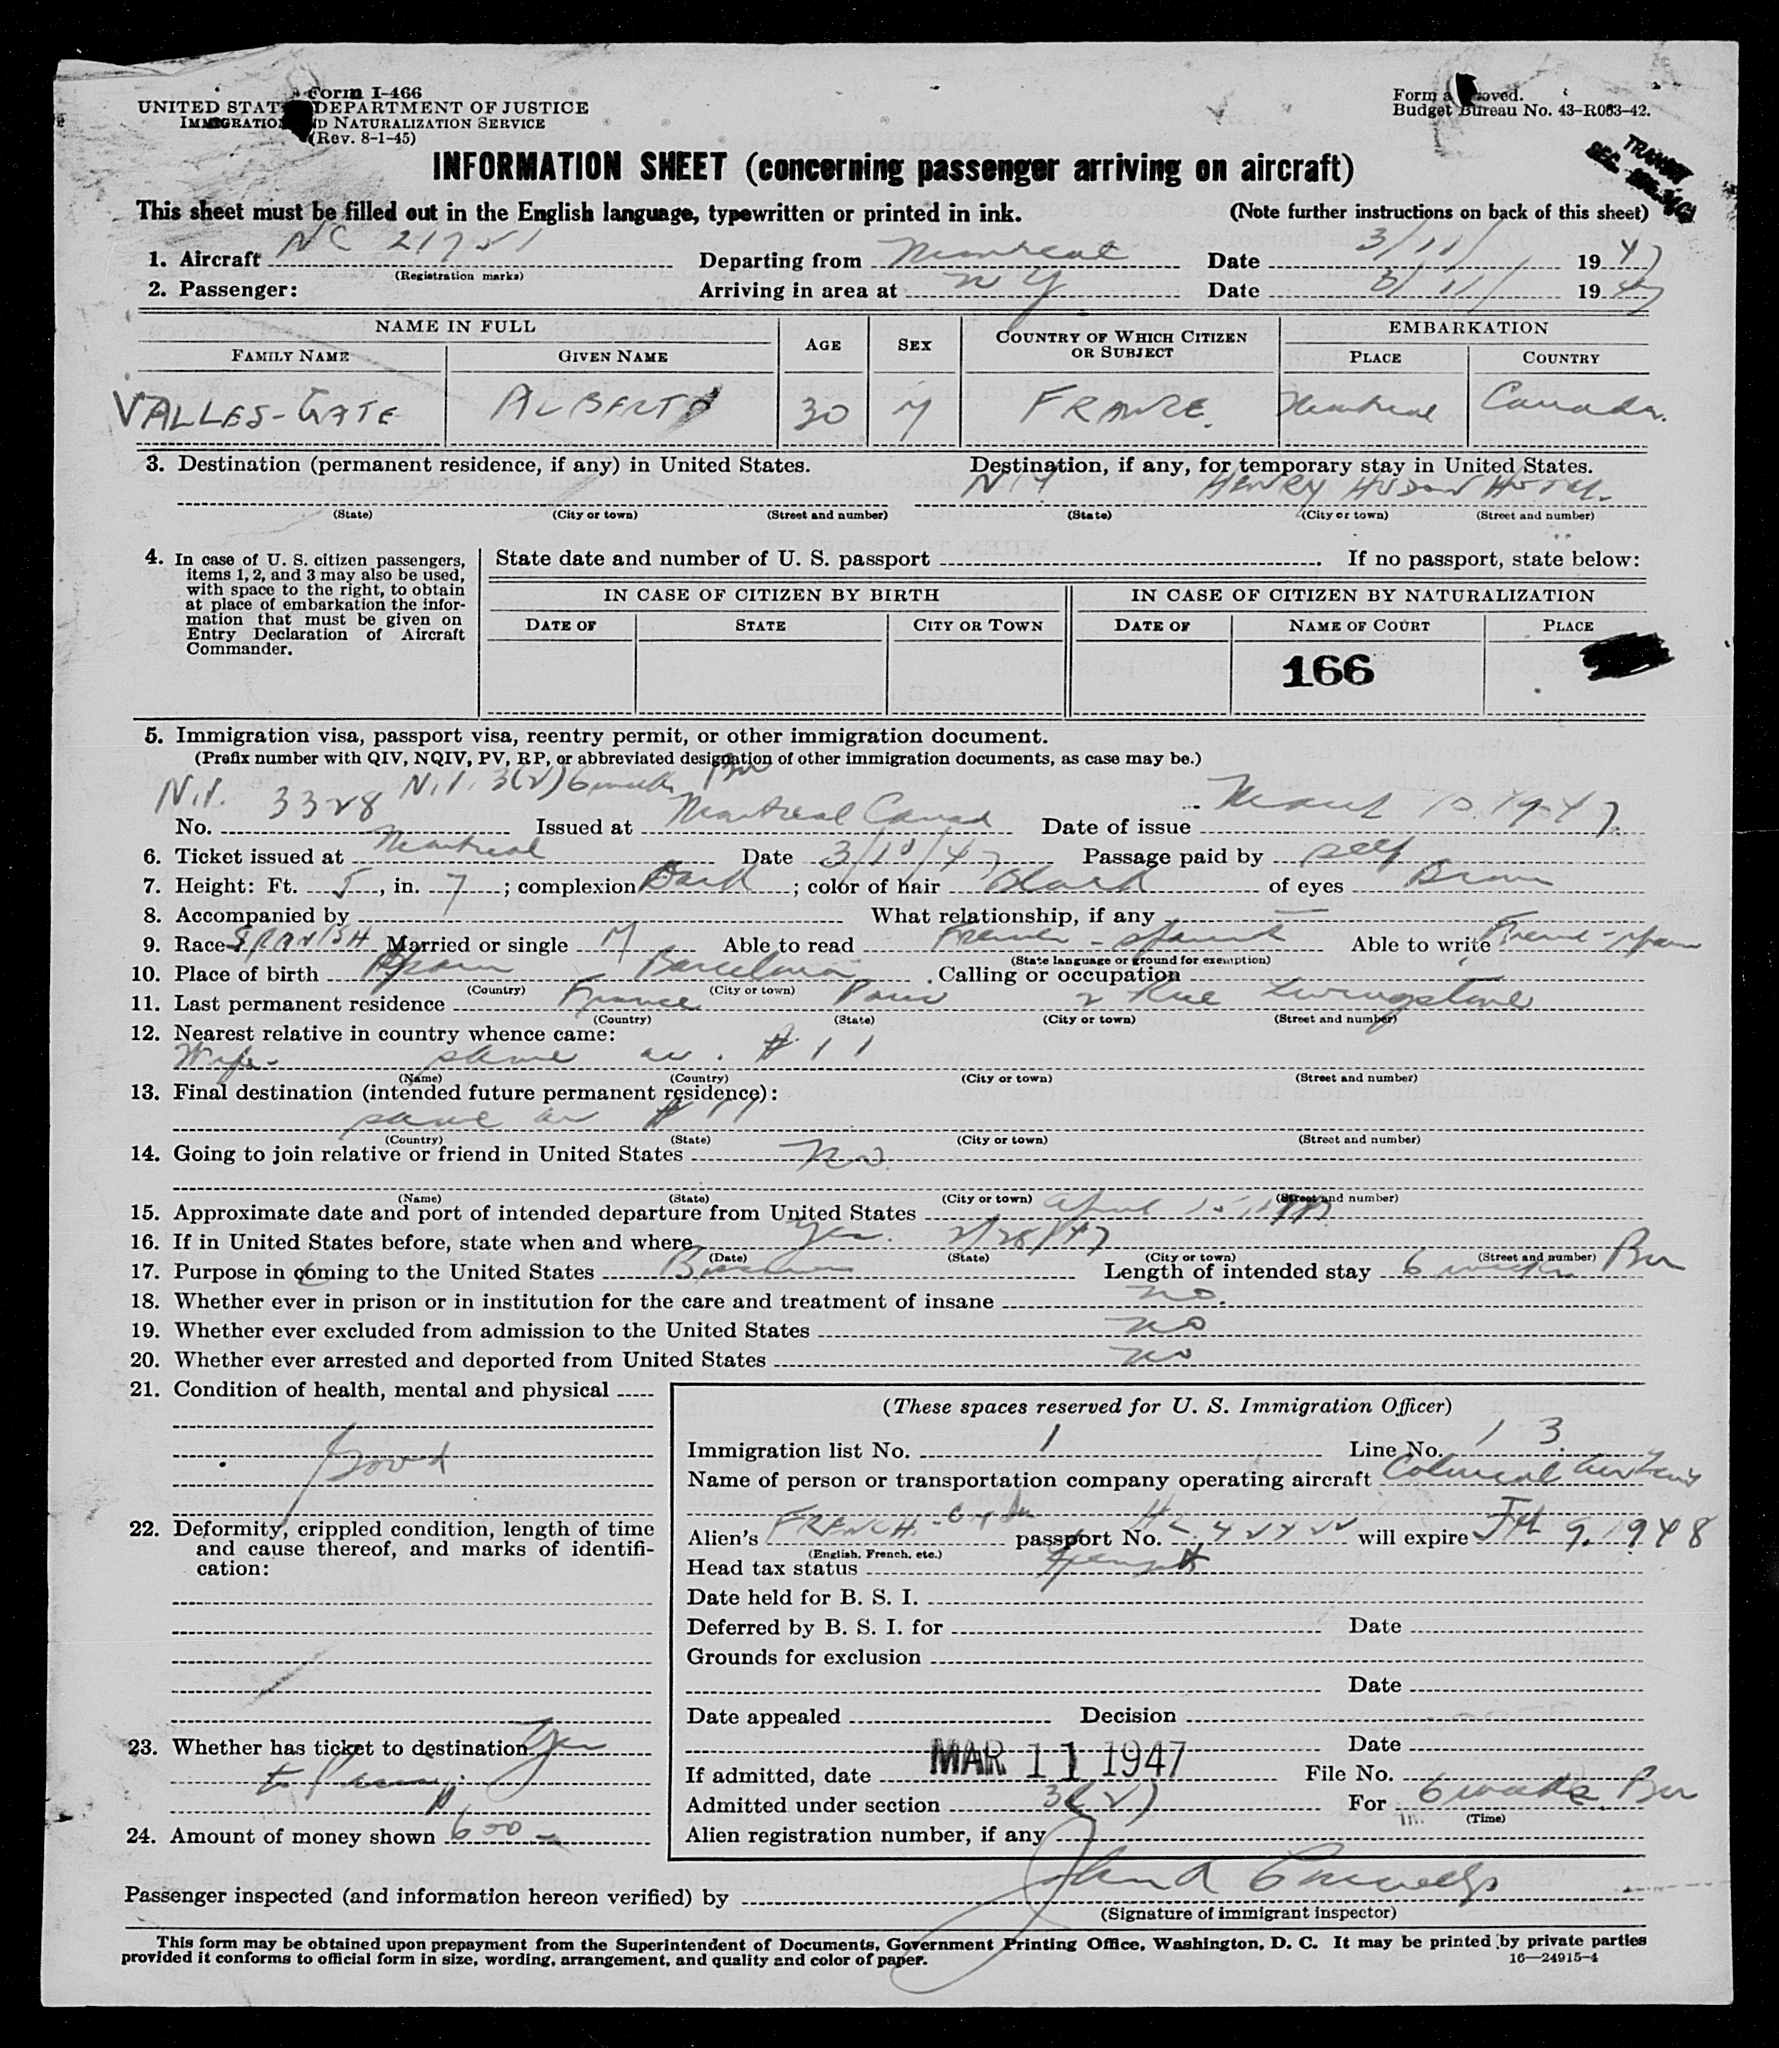 Form I-466
UNITED STATES DEPARTMENT OF JUSTICE
IMMIGRATION AND NATURALIZATION SERVICE
(Rev. 8-1-45)
Form approved.
Budget Bureau No. 43-R063-42.
TRANSIT
SEC.
INFORMATION SHEET (concerning passenger arriving on aircraft)
This sheet must be filled out in the English language, typewritten or printed in ink. (Note further instructions on back of this sheet)
1. Aircraft NC 21751 Departing from Montreal Date 3/11/ 1947
(Registration marks)
2. Passenger: Arriving in area at NY Date 3/11/ 1947
NAME IN FULL AGE SEX COUNTRY OF WHICH CITIZEN OR SUBJECT EMBARKATION
FAMILY NAME GIVEN NAME PLACE COUNTRY
VALLES-GATE ALBERTO 30 M FRANCE. Montreal Canada.
3. Destination (permanent residence, if any) in United States. Destination, if any, for temporary stay in United States.
N.Y. HENRY HUDSON HOTEL.
(State) (City or town) (Street and number) (State) (City or town) (Street and number)
4. In case of U. S. citizen passengers, items 1, 2, and 3 may also be used, with space to the right, to obtain at place of embarkation the information that must be given on Entry Declaration of Aircraft Commander.
State date and number of U. S. passport . If no passport, state below:
IN CASE OF CITIZEN BY BIRTH IN CASE OF CITIZEN BY NATURALIZATION
DATE OF STATE CITY OR TOWN DATE OF NAME OF COURT PLACE
166
5. Immigration visa, passport visa, reentry permit, or other immigration document.
(Prefix number with QIV, NQIV, PV, RP, or abbreviated designation of other immigration documents, as case may be.)
N.I. 3(2) 6 weeks Bu
N.I.
No. 3328 Issued at Montreal Canad Date of issue March 10, 1947.
6. Ticket issued at Montreal Date 3/10/47 Passage paid by self
7. Height: Ft. 5, in. 7; complexion Dark; color of hair Black of eyes Brown
8. Accompanied by What relationship, if any —
9. Race SPANISH Married or single M Able to read French - Spanish Able to write French - Span
(State language or ground for exemption)
10. Place of birth Spain Barcelona Calling or occupation
(Country) (City or town)
11. Last permanent residence France Paris 2 Rue Livingstone
(Country) (State) (City or town) (Street and number)
12. Nearest relative in country whence came:
Wife - same as # 11
(Name) (Country) (City or town) (Street and number)
13. Final destination (intended future permanent residence):
same as # 11
(Country) (State) (City or town) (Street and number)
14. Going to join relative or friend in United States No.
(Name) (State) (City or town) (Street and number)
15. Approximate date and port of intended departure from United States April 15, 1947
16. If in United States before, state when and where Yes. 2/28/47
(Date) (State) (City or town) (Street and number)
17. Purpose in coming to the United States Business Length of intended stay 6 weeks Bu
18. Whether ever in prison or in institution for the care and treatment of insane no.
19. Whether ever excluded from admission to the United States no
20. Whether ever arrested and deported from United States no
21. Condition of health, mental and physical
Good
22. Deformity, crippled condition, length of time and cause thereof, and marks of identification:
23. Whether has ticket to destination Yes
to Paris.
24. Amount of money shown $ 600 —
(These spaces reserved for U. S. Immigration Officer)
Immigration list No. 1 Line No. 13
Name of person or transportation company operating aircraft Colonial Airlines
Alien's FRENCH passport No. will expire Feb 9, 1948
(English, French, etc.)
Head tax status Exempt
Date held for B. S. I.
Deferred by B. S. I. for Date
Grounds for exclusion
Date
Date appealed Decision
Date
If admitted, date MAR 11 1947 File No.
Admitted under section 3(2) For 6 weeks Bu
(Time)
Alien registration number, if any
Passenger inspected (and information hereon verified) by
(Signature of immigrant inspector)
This form may be obtained upon prepayment from the Superintendent of Documents, Government Printing Office, Washington, D. C. It may be printed by private parties
provided it conforms to official form in size, wording, arrangement, and quality and color of paper. 16—24915-4